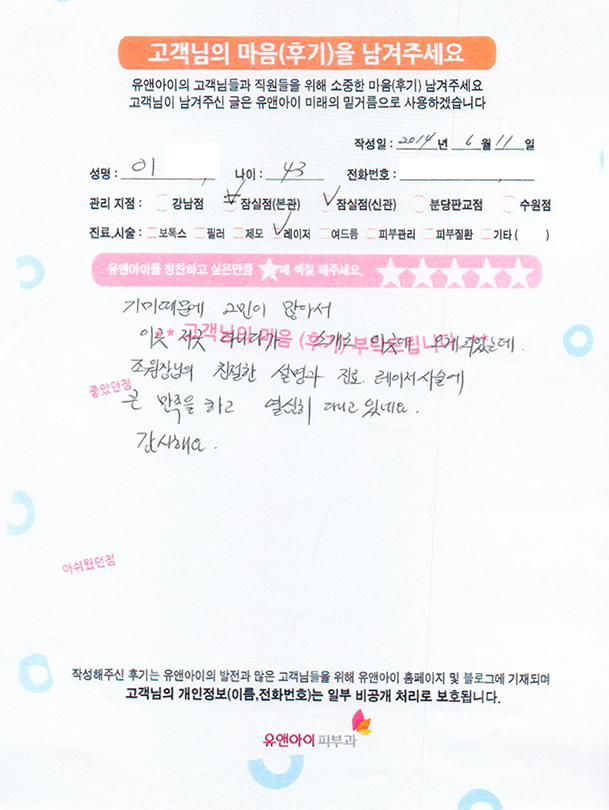 고객님의 마음(후기)을 남겨주세요
유앤아이의 고객님들과 직원들을 위해 소중한 마음(후기) 남겨주세요
고객님이 남겨주신 글은 유앤아이 미래의 밑거름으로 사용하겠습니다
작성일 : 2014 년 6 월 11 일
성명 : 이 나이 : 43 전화번호 :
관리 지점 : 강남점 잠실점(본관) 잠실점(신관) 분당판교점 수원점
진료,시술 : 보톡스 필러 제모 레이저 여드름 피부관리 피부질환 기타 ( )
유앤아이를 칭찬하고 싶은만큼 ★에 색칠 해주세요. ★★★★★
기미때문에 고민이 많아서
이곳 저곳 다니다가 소개로 이곳에 오게 되었는데.
** 고객님의 마음 (후기) 부탁드립니다 **
조원장님의 친절한 설명과 진료 레이저시술에
좋았던점
큰 만족을 하고 열심히 다니고 있네요.
감사해요.
아쉬웠던점
작성해주신 후기는 유앤아이의 발전과 많은 고객님들을 위해 유앤아이 홈페이지 및 블로그에 기재되며
고객님의 개인정보(이름,전화번호)는 일부 비공개 처리로 보호됩니다.
유앤아이피부과